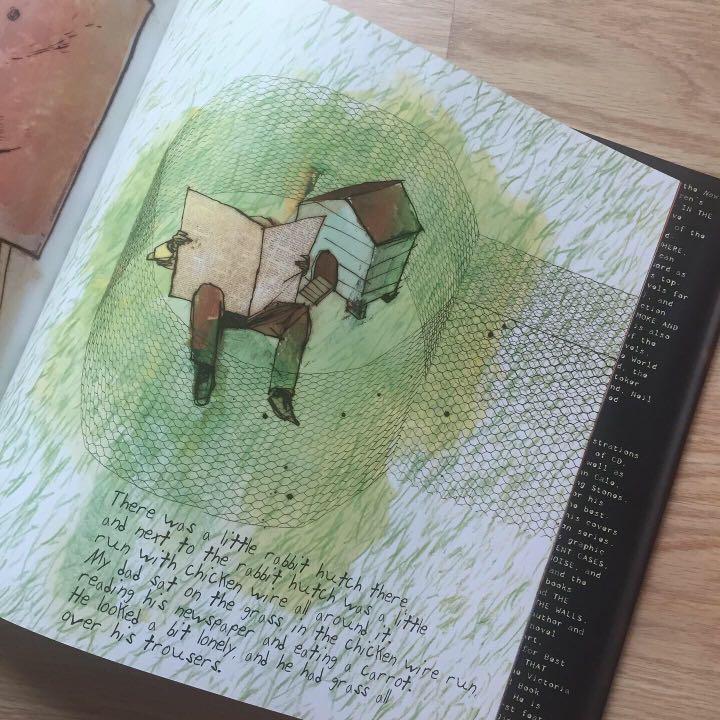 There was a little rabbit hutch there
and next to the rabbit hutch was a little
run with chicken wire all around it.
My dad sat on the grass in the chicken wire run
reading his newspaper and eating a carrot.
He looked a bit lonely, and he had grass all
over his trousers.
the New
IN THE
of the
as
top.
for
and
MOKE AND
is also
of the
World
the
Neil
strations
of CD,
well as
Stones.
his
best
covers
series
graphic
and
and the
books
THE
THE WALLS.
author and
novel
art.
for Best
THAT
Victoria
Book
He is